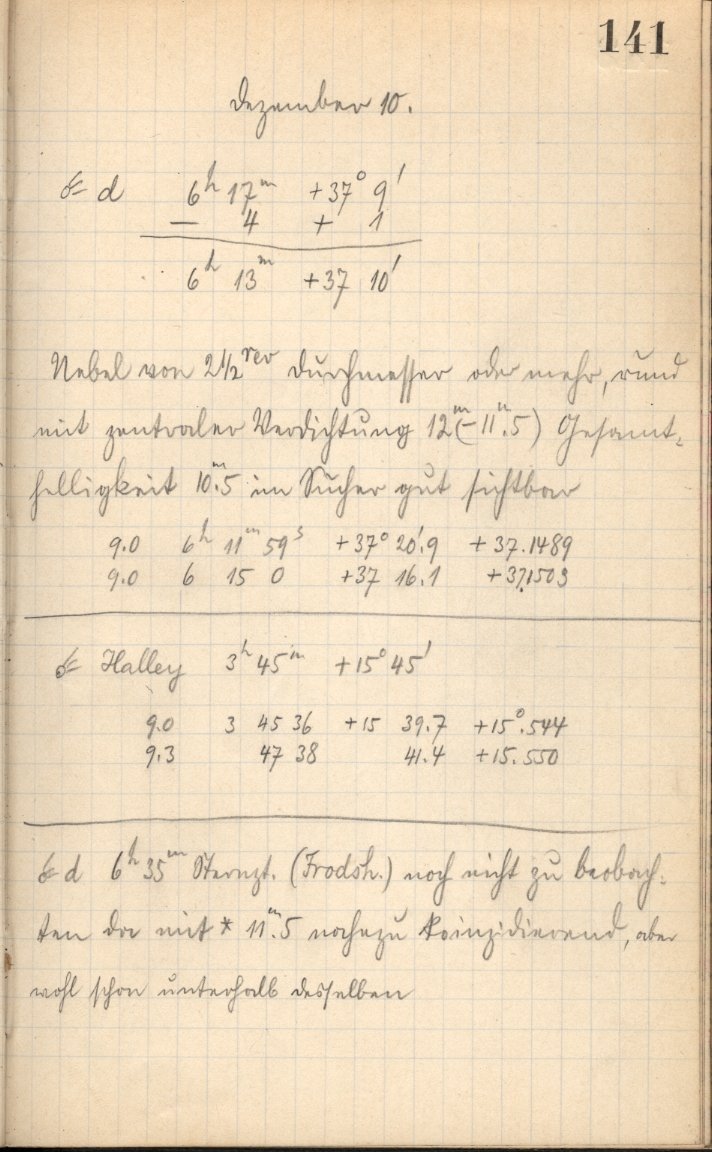 141
Dezember 10.
☄ d 6ʰ 17ᵐ +37° 9'
— 4 + 1
6ʰ 13ᵐ +37 10'
Nebel von 2½ʳᵉᵛ Durchmesser oder mehr, rund
mit zentraler Verdichtung 12ᵐ(–11ᵐ.5) Gesamt-
helligkeit 10ᵐ.5 im Sucher gut sichtbar
9.0 6ʰ 11ᵐ 59ˢ +37° 20'.9 +37.1489
9.0 6 15 0 +37 16.1 +37.1503
☄ Halley 3ʰ 45ᵐ +15° 45'
9.0 3 45 36 +15 39.7 +15°.544
9.3 47 38 41.4 +15.550
☄ d 6ʰ 35ᵐ Sternzt. (Frodsh.) noch nicht zu beobach-
ten da mit * 11ᵐ.5 nahezu koinzidierend, aber
wohl schon unterhalb desselben